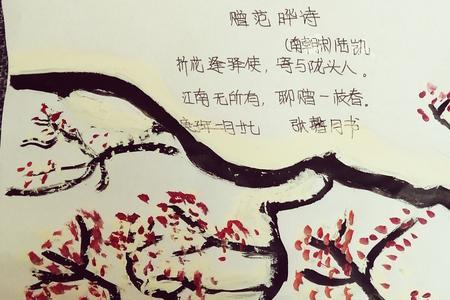 赠范晔诗
(南朝宋)陆凯
折花逢驿使，寄与陇头人。
江南无所有，聊赠一枝春。
一月廿七 张 月书